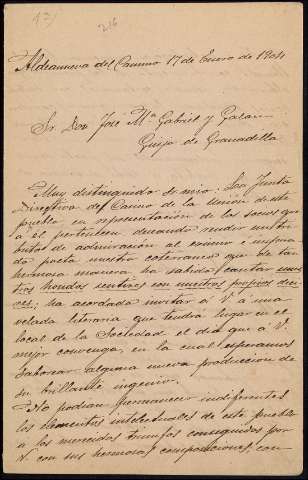 216
Aldeanueva del Camino 17 de Enero de 1904
Sr. Don José Mª Gabriel y Galan
Guijo de Granadilla
Muy distinguido Sr mio: La Junta
Directiva del Casino de la Union de este
pueblo en representación de los socios que
a él pertenecen deseando rendir un tri-
buto de admiración al eximio é inspira-
do poeta nuestro coterraneo que de tan
hermosa manera ha sabido cantar nues-
tros hondos sentires con nuestros propios deci-
res; ha acordado invitar á V. á una
velada literaria que tendrá lugar en el
local de la Sociedad el dia que á V.
mejor convenga, en la cual esperamos
saborear alguna nueva produccion de
su brillante ingenio.
No podian permanecer indiferentes
los elementos intelectuales de este pueblo
á los merecidos triunfos conseguidos por
V. con sus hermosas composiciones, con